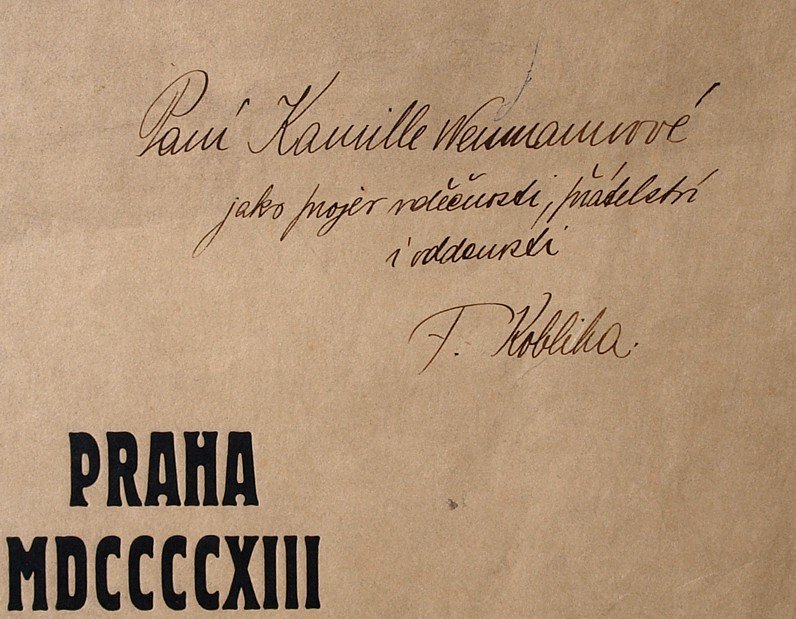 Paní Kamille Neumannové
jako projev vděčnosti, přátelství
i oddanosti
F. Kobliha.
PRAHA
MDCCCCXIII